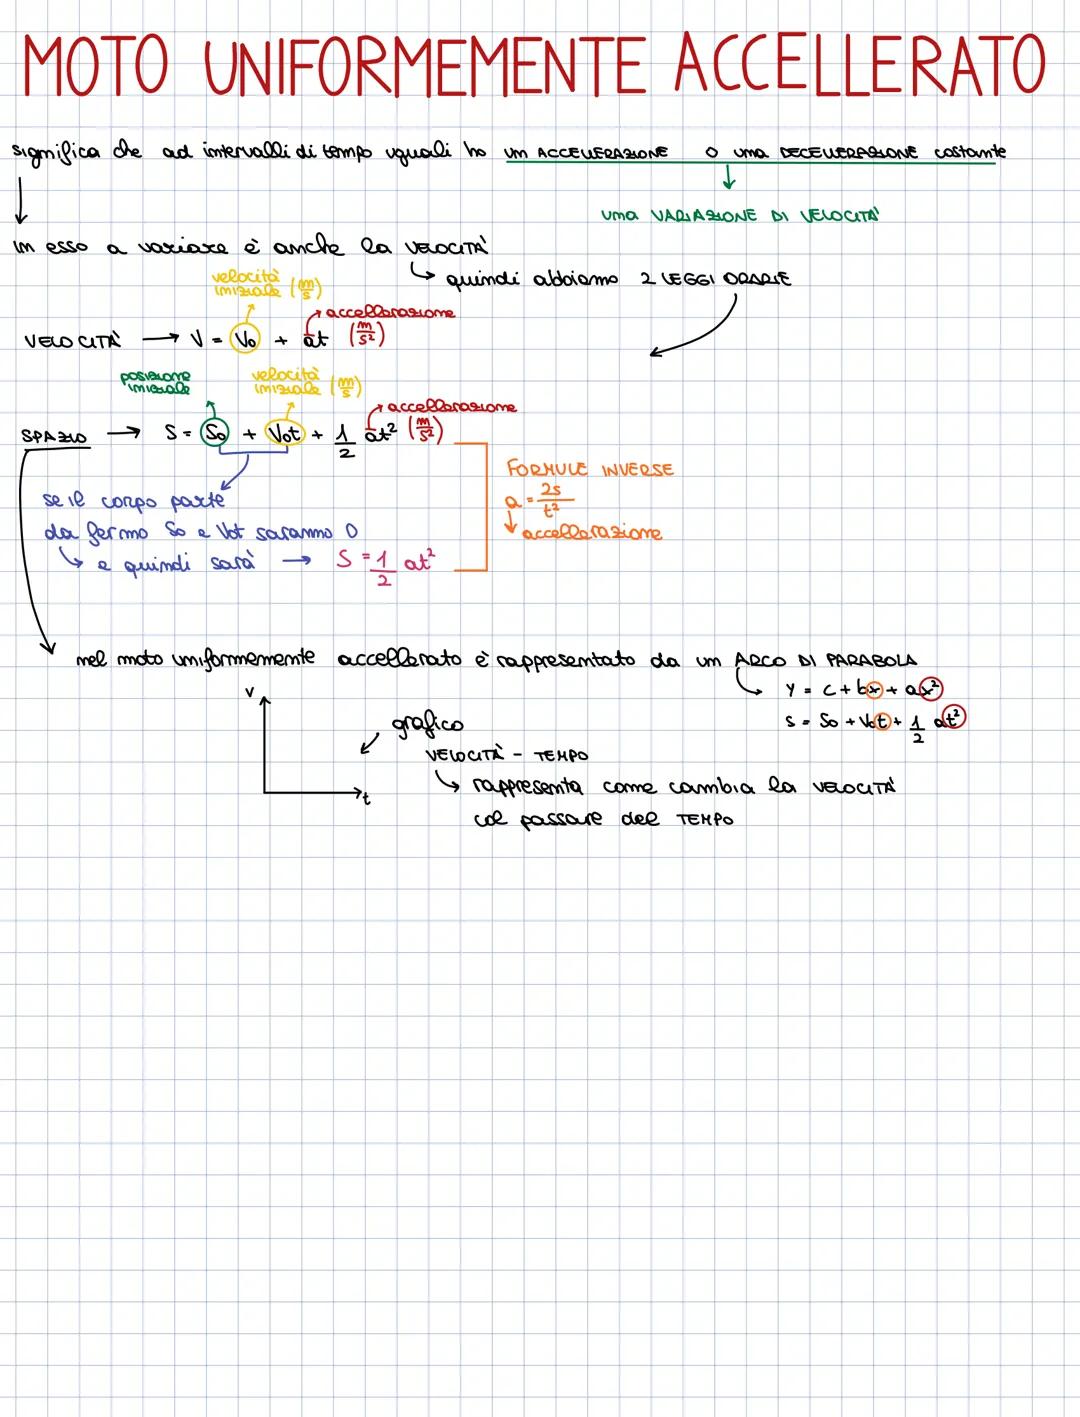 MOTO UNIFORMEMENTE ACCELLERATO
significa che ad intervalli di tempo uguali ho un ACCELLERAZIONE o una DECELLERAZIONE costante
una VARIAZIONE DI VELOCITÀ
in esso a variare è anche la VELOCITÀ
quindi abbiamo 2 LEGGI ORARIE
velocità
iniziale (m/s)
accellerazione
VELOCITÀ → V = V₀ + at (m/s²)
posizione
iniziale
velocità
iniziale (m/s)
accellerazione
SPAZIO → S = S₀ + V₀t + 1/2 at² (m/s²)
FORMULE INVERSE
a = 2s/t²
accellerazione
se il corpo parte
da fermo S₀ e V₀t saranno 0
e quindi sarà → S = 1/2 at²
nel moto uniformemente accellerato è rappresentato da un ARCO DI PARABOLA
y = c + bx + ax²
s = S₀ + V₀t + 1/2 at²
v
grafico
VELOCITÀ - TEMPO
t
rappresenta come cambia la VELOCITÀ
col passare del TEMPO